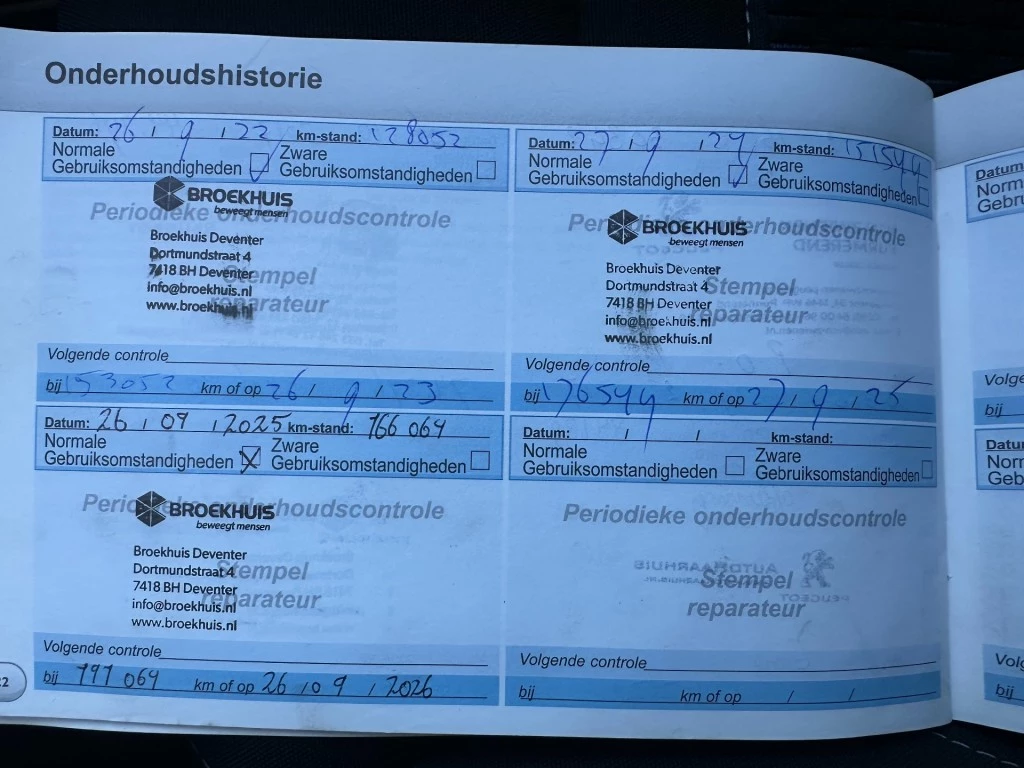 Onderhoudshistorie
Datum: 26 / 9 / 22 km-stand: 128052
Normale Gebruiksomstandigheden
Zware Gebruiksomstandigheden
BROEKHUIS
beweegt mensen
Periodieke onderhoudscontrole
Broekhuis Deventer
Dortmundstraat 4
7418 BH Deventer
info@broekhuis.nl
www.broekhuis.nl
Stempel
reparateur
Volgende controle
bij 153052 km of op 26 / 9 / 23
Datum: 27 / 9 / 24 km-stand: 151544
Normale Gebruiksomstandigheden
Zware Gebruiksomstandigheden
BROEKHUIS
beweegt mensen
Periodieke onderhoudscontrole
Broekhuis Deventer
Dortmundstraat 4
7418 BH Deventer
info@broekhuis.nl
www.broekhuis.nl
Stempel
reparateur
Volgende controle
bij 176544 km of op 27 / 9 / 25
Datum: 26 / 09 / 2025 km-stand: 166 064
Normale Gebruiksomstandigheden
Zware Gebruiksomstandigheden
BROEKHUIS
beweegt mensen
Periodieke onderhoudscontrole
Broekhuis Deventer
Dortmundstraat 4
7418 BH Deventer
info@broekhuis.nl
www.broekhuis.nl
Stempel
reparateur
Volgende controle
bij 191 064 km of op 26 / 09 / 2026
Datum: / / km-stand:
Normale Gebruiksomstandigheden
Zware Gebruiksomstandigheden
Periodieke onderhoudscontrole
Stempel
reparateur
Volgende controle
bij km of op / /
22
Datum
bij
bij